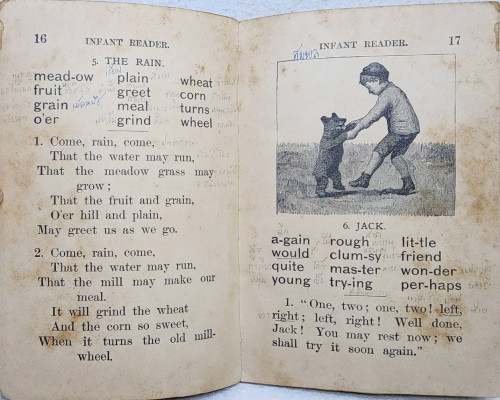 16 INFANT READER.
5. THE RAIN.
mead-ow plain wheat
fruit greet corn
grain meal turns
o'er grind wheel
1. Come, rain, come,
That the water may run,
That the meadow grass may
grow;
That the fruit and grain,
O'er hill and plain,
May greet us as we go.
2. Come, rain, come,
That the water may run,
That the mill may make our
meal.
It will grind the wheat
And the corn so sweet,
When it turns the old mill-
wheel.
INFANT READER. 17
6. JACK.
a-gain rough lit-tle
would clum-sy friend
quite mas-ter won-der
young try-ing per-haps
1. "One, two; one, two! left,
right; left, right! Well done,
Jack! You may rest now; we
shall try it soon again."